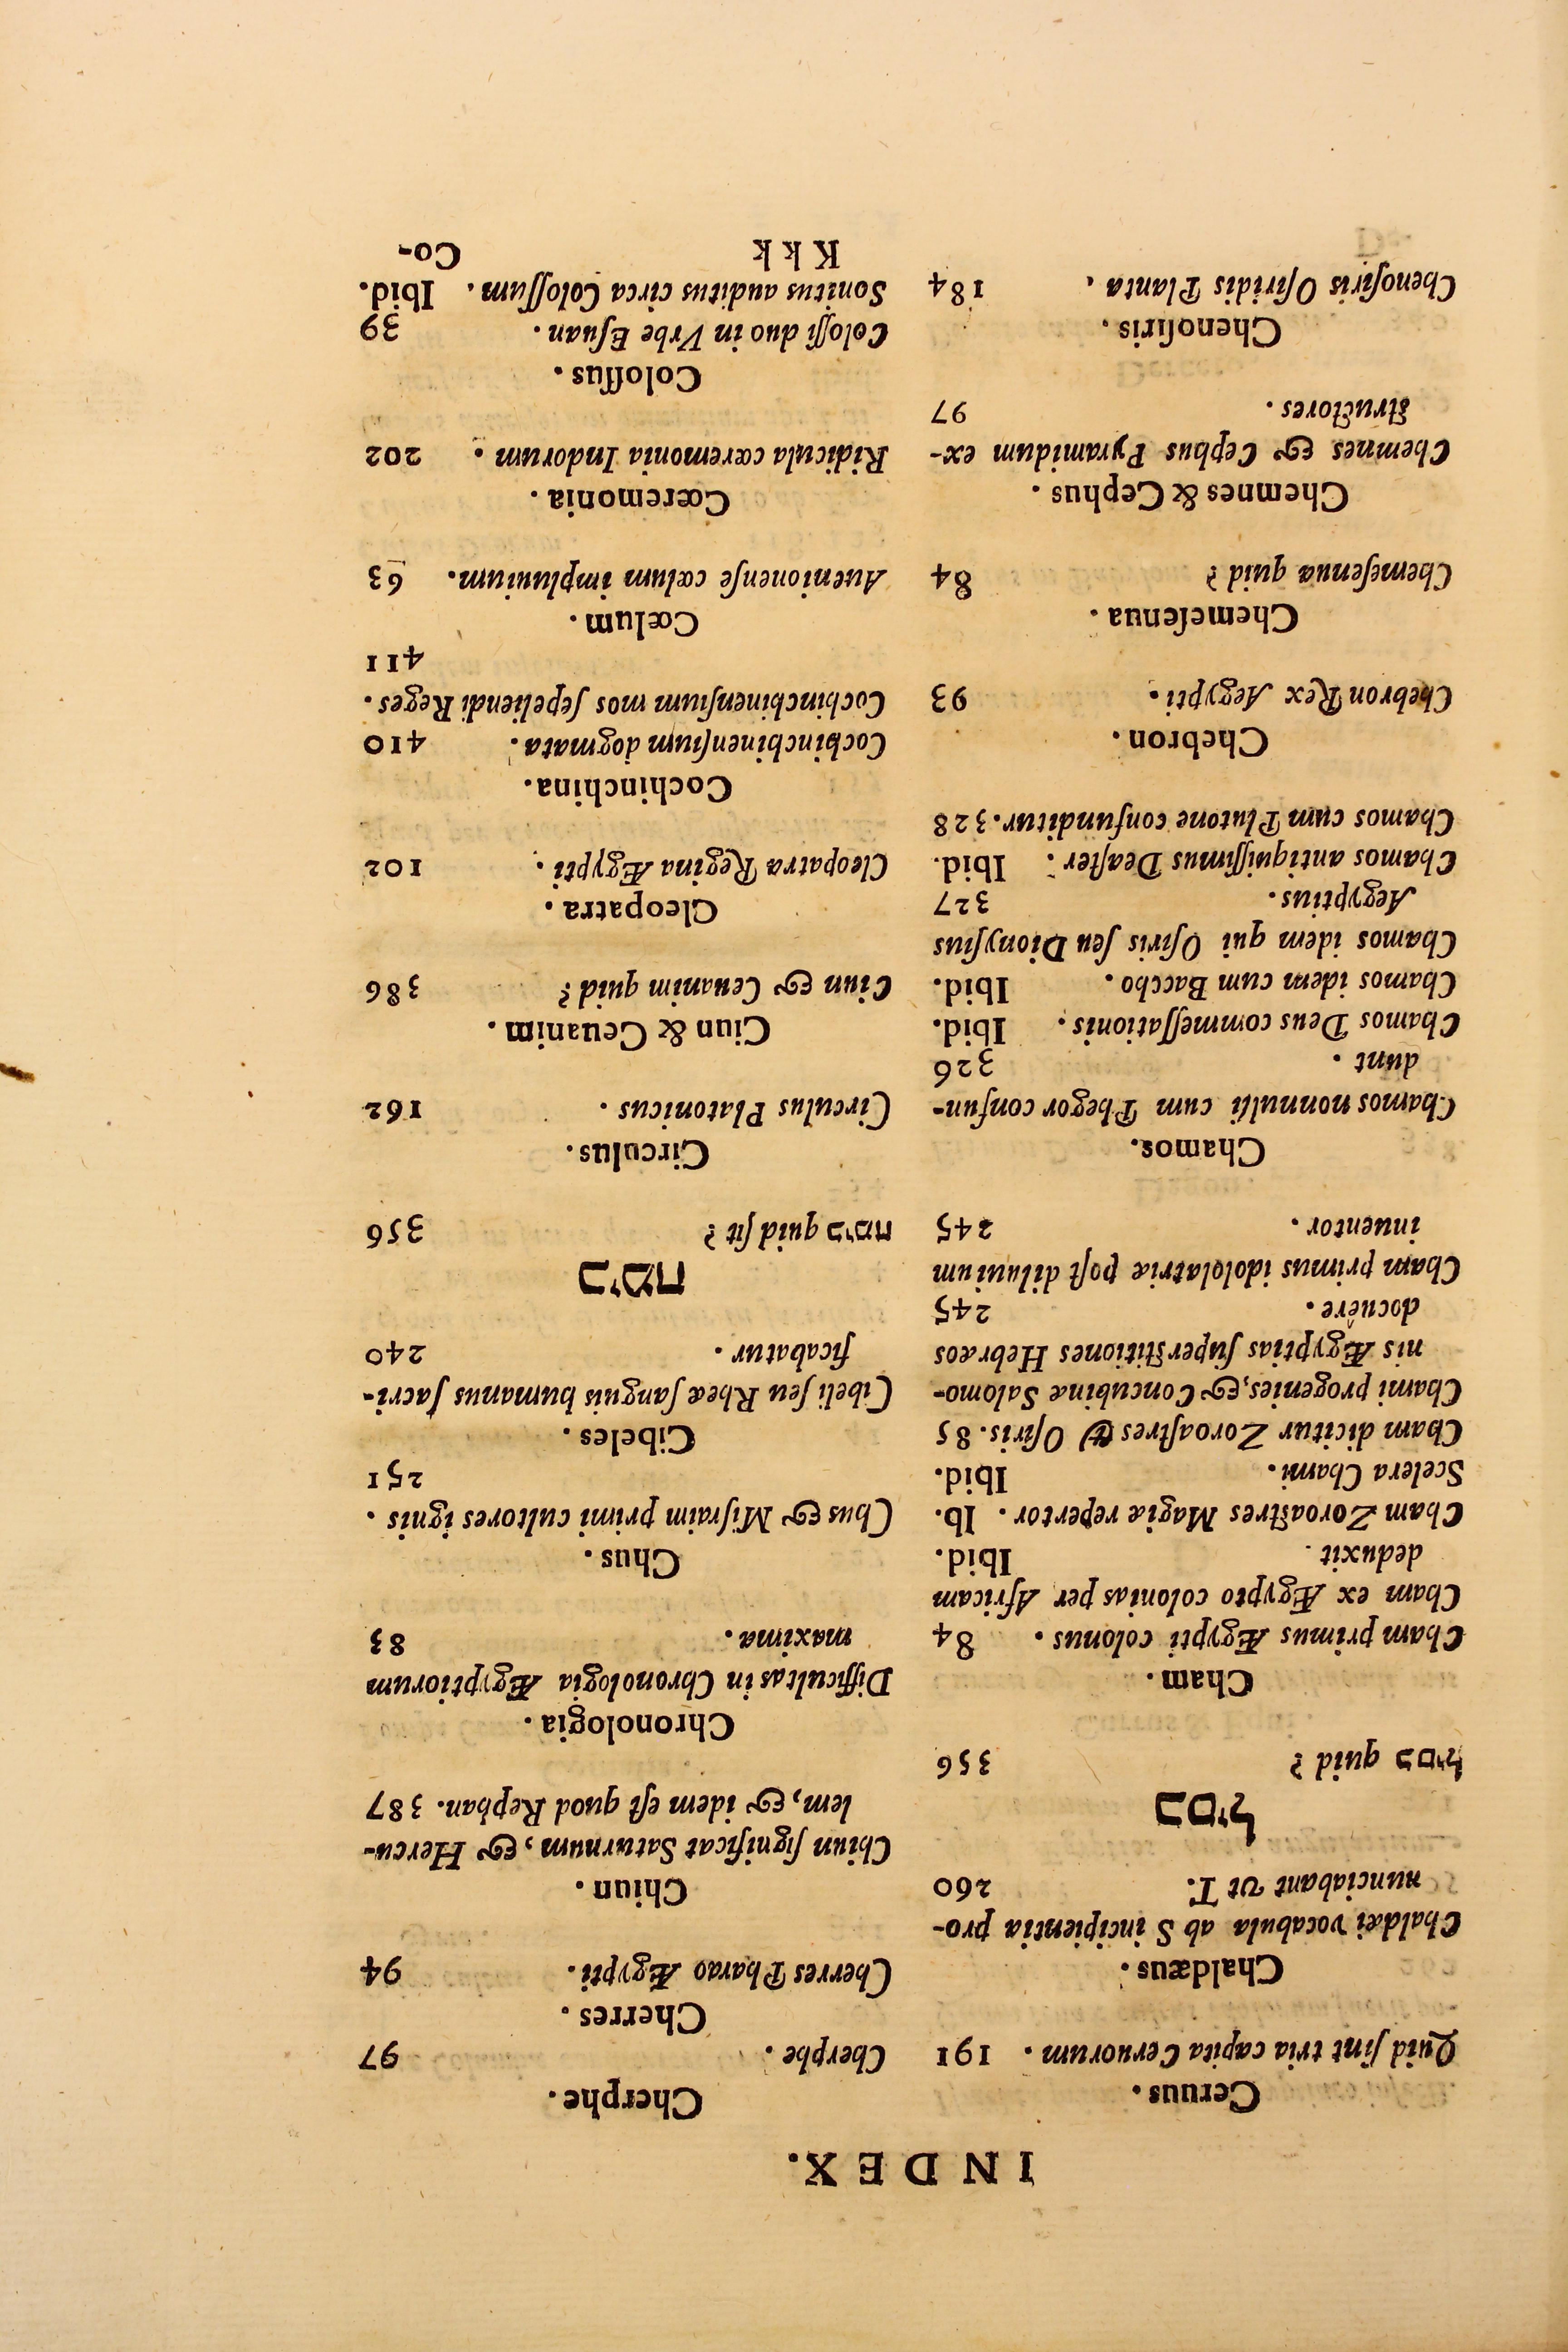 INDEX.
Ceruus.
Quid ſint tria capita Ceruorum. 191
Chaldæus.
Chaldæi vocabula ab S incipientia pro-
nunciabant vt T. 260
כסיל
כסיל quid? 356
Cham.
Cham primus Ægypti colonus. 84
Cham ex Ægypto colonias per Africam
deduxit. Ibid.
Cham Zoroaſtres Magiæ repertor. Ib.
Scelera Chami. Ibid.
Cham dicitur Zoroaſtres & Oſiris. 85
Chami progenies, & Concubinæ Salomo-
nis Ægyptias ſuperſtitiones Hebræos
docuêre. 245
Cham primus idololatriæ poſt diluuium
inuentor. 245
Chamos.
Chamos nonnulli cum Phegor confun-
dunt. 326
Chamos Deus commeſſationis. Ibid.
Chamos idem cum Baccho. Ibid.
Chamos idem qui Oſiris ſeu Dionyſius
Aegyptius. 327
Chamos antiquiſſimus Deaſter. Ibid.
Chamos cum Plutone confunditur. 328
Chebron.
Chebron Rex Aegypti. 93
Chemeſenua.
Chemeſenua quid? 84
Chemnes & Cephus.
Chemnes & Cephus Pyramidum ex-
ſtructores. 97
Chenoſiris.
Chenoſiris Oſiridis Planta. 184
Cherphe.
Cherphe. 97
Cherres.
Cherres Pharao Ægypti. 94
Chiun.
Chiun ſignificat Saturnum, & Hercu-
lem, & idem eſt quod Rephan. 387
Chronologia.
Difficultas in Chronologia Ægyptiorum
maxima. 83
Chus.
Chus & Miſraim primi cultores ignis.
251
Cibeles.
Cibeli ſeu Rheæ ſanguis humanus ſacri-
ficabatur. 240
כימה
כימה quid ſit? 356
Circulus.
Circulus Platonicus. 162
Ciun & Ceuanim.
Ciun & Ceuanim quid? 386
Cleopatra.
Cleopatra Regina Ægypti. 102
Cochinchina.
Cochinchinenſium dogmata. 410
Cochinchinenſium mos ſepeliendi Reges.
411
Cœlum.
Auenionenſe cœlum impluuium. 63
Cœremonia.
Ridicula cœremonia Indorum. 202
Coloſſus.
Coloſſi duo in Vrbe Eſuan. 39
Sonitus auditus circa Coloſſum. Ibid.
Kkk Co-